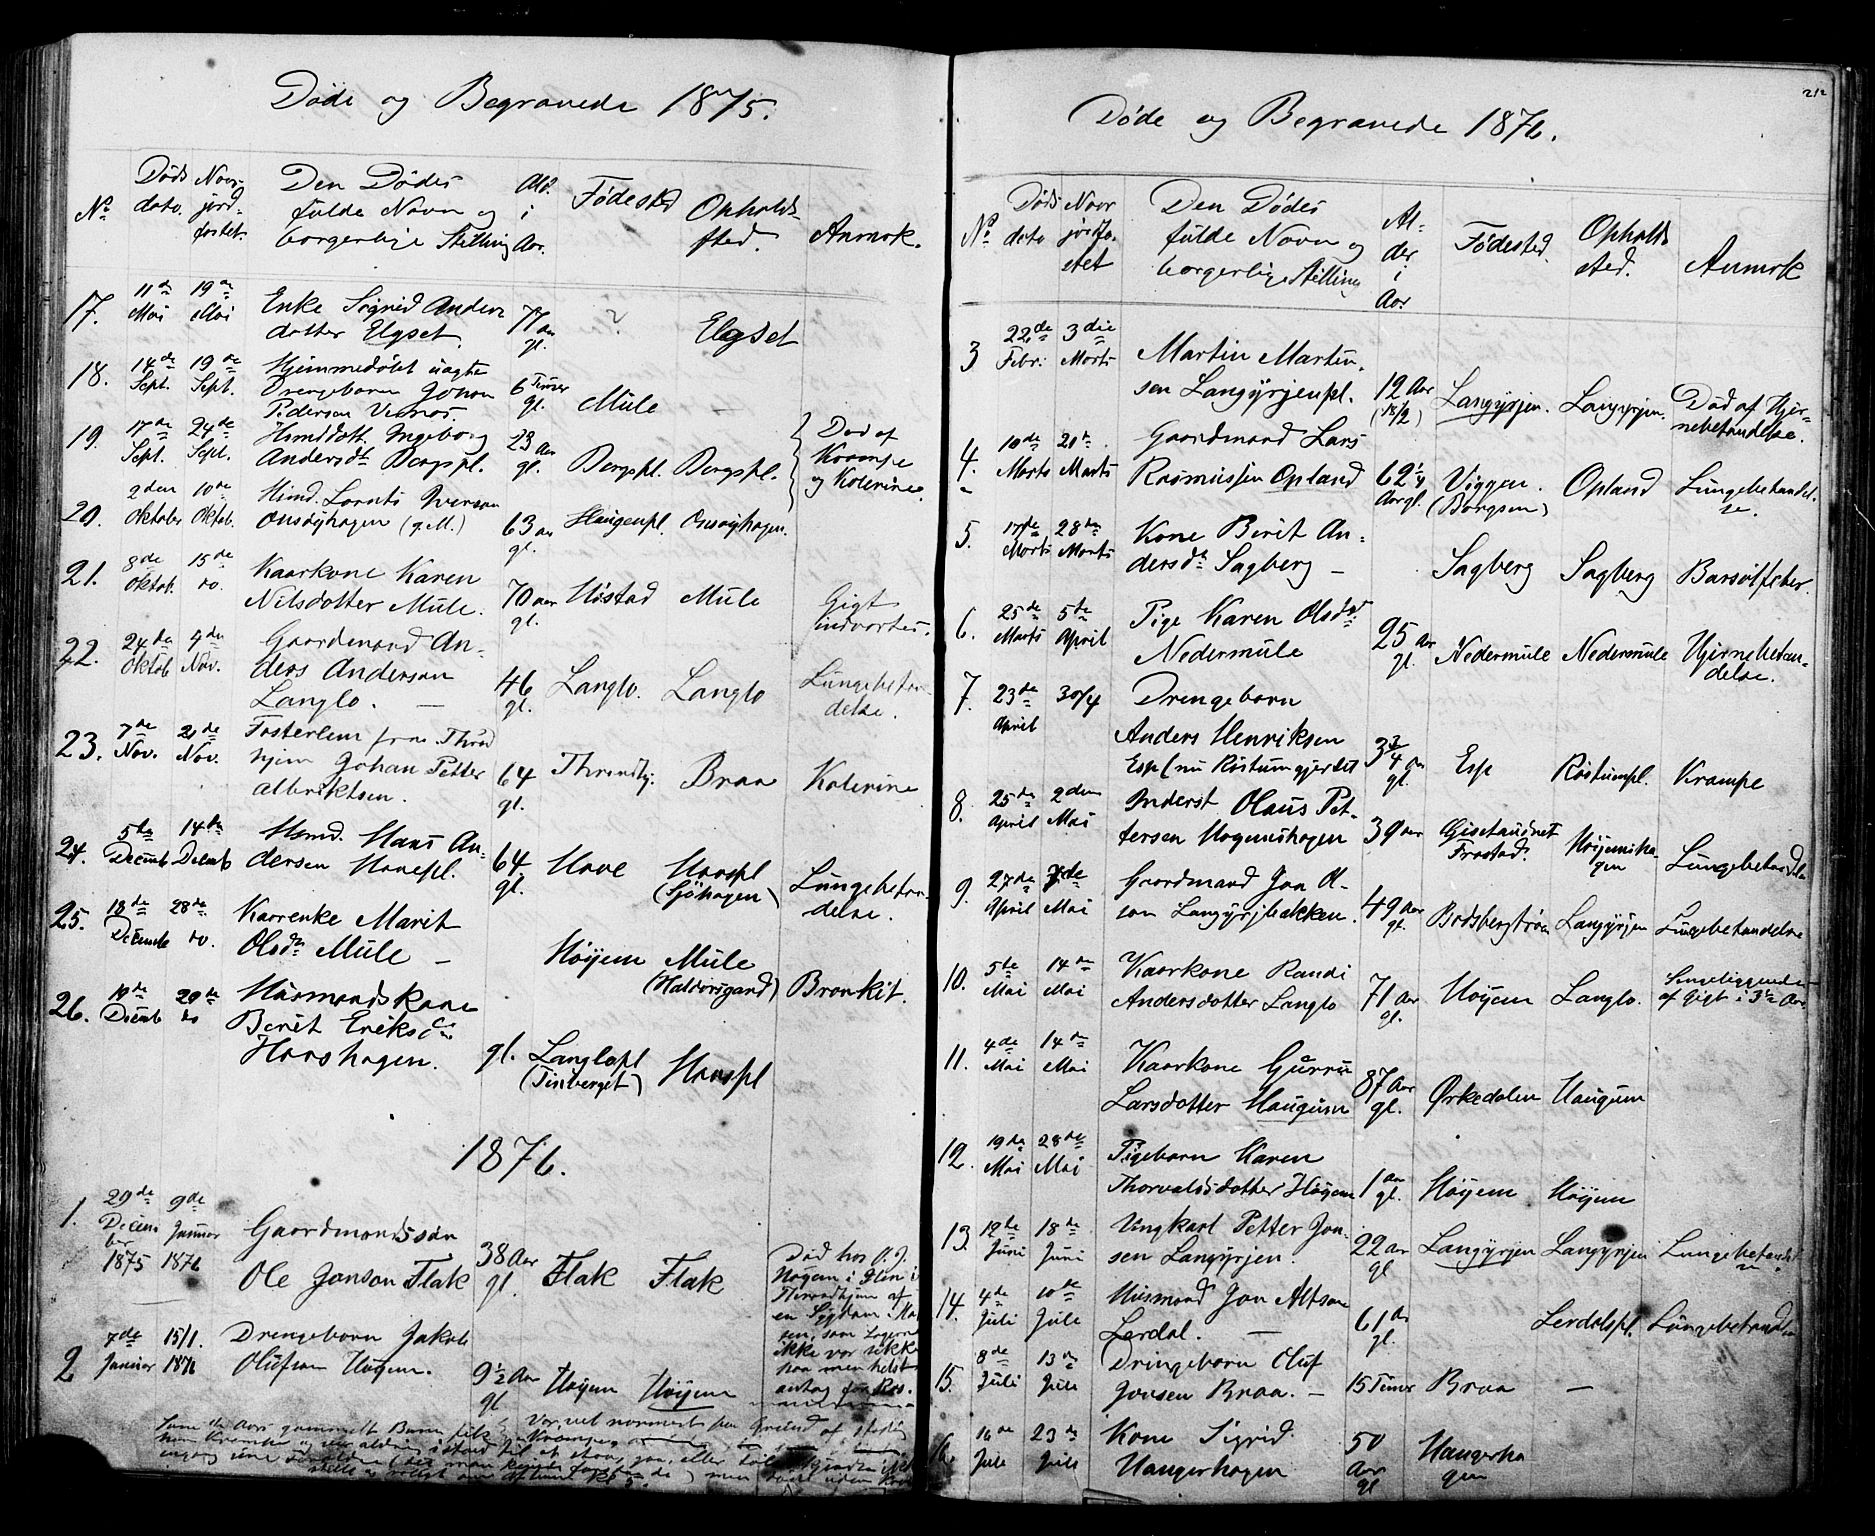 Døde og Begravede 1875.
No
Døds
dato.
Navn
jord-
fæstet.
Den Dødes
fulde Navn og
borgerlige Stilling
Ald.
i
Aar.
Fødested
Opholds-
sted.
Anmrk.
17.
11te Mai
19de Mai
Enke Sigrid Anders
datter Elgset.
77 aar gl.
?
Elgset
18.
14de Sept.
19de Sept.
Hjemmedøbt uægte
Drengebarn Johan
Pedersen
6 Timer gl.
Mule
—
19.
17de Sept.
24de Sept.
Hsmdatt. Ingeborg
Andersdt. Bergspl.
23 aar gl.
Bergspl.
Bergspl.
Død af
Krampe
og Kolerine.
20.
2den Oktober
10de Oktob.
Hsmd. Lornts Iversen
Onsøyhagen (g.M.)
63 aar gl.
Haugenpl.
Onsøyhagen.
21.
8de Oktob.
15de do.
Kaarkone Karen
Nilsdatter Mule.
70 aar gl.
Høstad
Mule
Gigt
indvortes.
22.
24de Oktob
4de Nov.
Gaardmand An-
ders Andersen
Langlo. —
46 gl.
Langlo.
Langlo
Lungebetæn-
delse.
23.
7de Nov.
21de Nov.
Fosterlem fra Thrond
hjem Johan Petter
Albriktsen.
64 gl.
Throndhj.
Braa
Kolerine
24.
5te Decemb
14de Decemb
Hsmd. Hans An-
dersen Hovspl.
64 gl.
Hove
Hovspl
(Sjøhagen)
Lungebetæn-
delse.
25.
18de Decemb
28de do.
Kaarenke Marit
Olsdt. Mule —
Høyem
Mule
(Haldorsgaard)
Bronkit.
26.
19de Decemb
29de do
Husmandskone
Berit Eriksdt.
Hovshagen.
gl.
Langlopl
(Tinberget)
Hovspl
1876.
1.
29de
Decem
ber
1875
9de
Januar
1876
Gaardmandssøn
Ole Jonson Flak
38 Aar gl.
Flak
Flak
Død hos O. J.
Høyem i Ilen i
Throndhjem af
en Sygdom
som Lægerne
ikke var sikke
paa men helst
antog for Ros.
2
7de Januar
15/1. 1876
Drengebarn Jakob
Olufson Høyem.
9½ Aar gl.
Høyem
Høyem
Døde og Begravede 1876.
212
No
Døds
dato
Navn
jordfæ.
stet
Den Dødes
fulde Navn og
borgerlige Stilling
Al-
der
i
Aar
Fødested.
Opholds
sted.
Anmrk
3
22de Febr:
3die Marts
Martin Martin-
sen Langyrjenpl.
12 Aar
(18/2)
Langyrjen.
Langyrjen.
Død af Hjer-
nebetændelse.
4.
10de Marts
20de Marts
Gaardmand Lars
Rasmussen Opland
62¼ Aar gl.
Viggen.
(Borgsen)
Opland
Lungebetændel-
se.
5.
17de Marts
28de Marts
Kone Berit An-
dersdt. Sagberg —
Sagberg
Sagberg
Barselfeber.
6.
25de Marts
5te April
Pige Karen Olsdt.
Nedermule
25 Aar gl.
Nedermule
Nedermule
Hjernebetæn-
delse.
7.
23de April
30/4
Drengebarn
Anders Henriksen
Esp (nu Røstumgjerdet
3¾ Aar gl.
Esp
Røstumpl.
Krampe
8.
25de April
2den Mai
Inderst Olaus Pet-
tersen Høgemshagen
39 aar
Gisetaasnet
Frostad.
Høyemsha-
gen
Lungebetændelse
9.
27de April
7de Mai
Gaardmand Jon Ol-
son Langyrjbakken.
49 aar gl.
Bodsbergtrøen
Langyrjen
Lungebetændelse
10.
5te Mai
14de Mai
Kaarkone Randi
Andersdatter Langlo
71 aar gl.
Høyem
Langlo.
Sengeliggende
af Gigt i 3½ Aar
11.
4de Mai
14de Mai
Kaarkone Gurru
Larsdatter Haugum
87 Aar gl.
Ørkedalen
Haugum
12.
19de Mai
28de Mai
Pigebarn Karen
Thorvaldsdatter Høyem
1 aar gl.
Høyem
Høyem
13.
12te Juni
18de Juni
Ungkarl Petter Jon-
sen Langyrjen.
22 aar gl
Langyrjen
Langyrjen
Lungebetændel
se.
14.
4de Juli
10de Jule
Husmand Jon Altson
Lerdal. —
61 aar gl.
Lerdalspl.
Lungebetændelse
15.
8de Juli
13de Jule
Drengebarn Oluf
Jonsen Braa. —
15 Timer
Braa
—
16.
16de Jule
23de Jule
Kone Sigrid
Haugerhagen
50
Aar
gl
Haugerha
gen